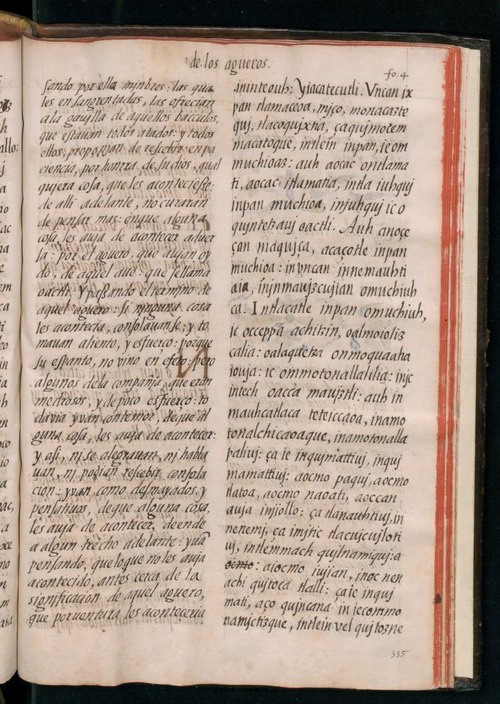 de los agueros.
fo. 4
sando, por ella mjnbros: las qua
les ensangrentadas, las ofrecian
a la gavilla de aquellos baculos,
que estauan todos atados: y todos
ellos, proponjan de rescebir en pa
ciencia, por honrra de su dios, qual
quiera cosa, que les aconteciesse:
de alli adelante, no curauan
de pensar mas: en que alguna
cosa les auja de acontecer aduer
sa: por el aguero, que aujan oy
do: de aquel aue que se llama
oactli. Y passando el termino de
aquel aguero: si njnguna cosa
les acontecia, consolauanse: y to
mauan aliento, y esfuerço: porque
su espanto, no vino en efecto: pero
algunos de la compañja, que eran
medrosos, y de poco esfuerço: to
davia yvan con temor, de que al
guna cosa, les auja de acontecer:
y asi, ni se alegrauan, ni habla
uan, ni podian rescebir consola
cion: yvan como desmayados, y
pensatiuos, de que alguna cosa,
les auja de acontecer, de ende
a algun trecho adelante: yuan
pensando, que lo que no les auja
acontecido, antes cerca de la
significacion de aquel aguero,
que por uentura les aconteceria
ininteouh: Yiacatecutli. Vncan ix
pan tlamaceoa, mjço, monacazte
quj, tlacoqujxtia, çaqujmotem
macatoque, intlein inpan, ie om
muchioaz: auh aocac ontlama
ti, aocac itlamatia, intla iuhquj
inpan muchioa, injuhquj ic o
qujntetzauj oactli. Auh anoçe
çan maqujça, acaçotle inpan
muchioa: in vncan innemauhti
aia, injnmaujzcujian omuchiuh
ca. Intlacatle inpan omuchiuh,
ic occeppa ochixin, oalmoioliz
calia: oalaquetza onmoquaaha
iouja: ic ommotonallalilia: injc
intech oacca maujztli: auh in
mauhcatlaca teteiccaoa, inamo
tonalchicaoaque, inamotonalla
paliuj: ça ie inqujmattiuj, inquj
mamattiuj: aocmo paquj, aocmo
tlatoa, aocmo naoati, aoccan
auja injollo: ça tlanauhtiuj, in
nenemj, ça injtic tlacujcujlotti
uj, intlemmach qujlnamjquj: a
aiocmo iuijan, inoc nen
achi qujtoca tlalli: ça ie inquj
mati, aço qujneana injecommo
namjctizque, intlein vel qujtozne
335